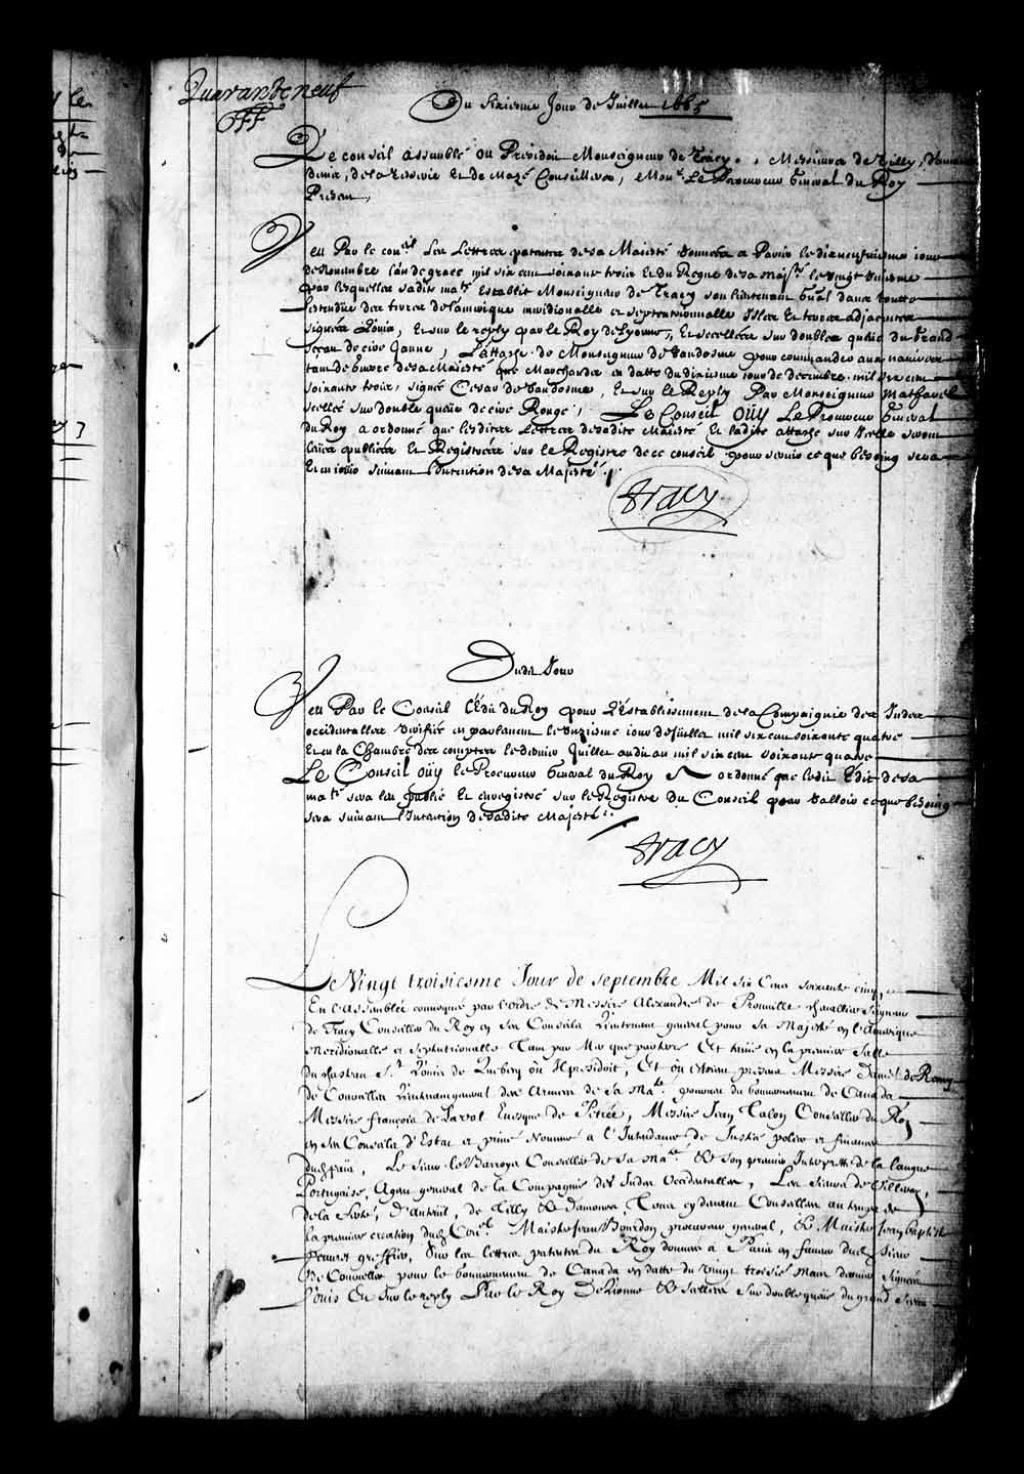 Quarandeneuf
Du sixiesme Jour de Juillet 1665
Le conseil assemblé ou Presidoit Monseigneur de Tracy, Messieurs de Tilly, Damours
denis, de la Tesserie Et de Mazé Conseillers, et Monr Le Procureur General du Roy
Present,
Veu Par le conel Les Lettres patentes de sa Maiesté données a Paris le dixneufviesme iour
de Novembre l'an de grace mil six cent soixante trois et du Regne de sa Majté le vingt uniesme
Par lesquelles sadite maté Establit Monseigneur de Tracy son lieutenant Gnal dans toutte
l'estendue des terres de l'amerique meridionalle et septentrionnalle Isles Et terres adjacentes
signées Louis, Et sur le reply par le Roy de Lyonne, Et scellées sur double queue du Grand
sceau de cire Jaune, L'attache de Monseigneur de Vandosme pour commander aux navires
tant de guerre de sa Maiesté que Marchands en datte du dixiesme iour de decembre mil six cent
soixante trois, signé Cesar de Vandosme, Et sur le Reply Par Monseigneur Matharel
scellé sur double queue de cire Rouge, Le Conseil oüy Le Procureur General
du Roy a ordonné que lesdites Lettres de sadite Maiesté Et ladite attache sur icelle seront
leües publiées Et Registrées sur le Registre de ce conseil pour servir ce que besoing sera
Et iouir suivant l'intention de sa Majesté
Tracy
Dudit Jour
Veu Par le Conseil l'Edit du Roy pour L'establissement de la Compaignie des Indes
occidentalles verifié en parlement le unziesme iour de Juillet mil six cent soixante quatre
Et en la Chambre des comptes le dernier Juillet audit an mil six cent soixante quatre
Le Conseil oüy le Procureur General du Roy A ordonné que ledit Edit de sa
maté sera leu publié Et enregistré sur le Registre du Conseil pour valloir ce que besoing
sera suivant l'intention de sadite Majesté
Tracy
Le Vingt troisiesme Jour de septembre Mil six Cens soixante cinq,
En l'assemblée convoqué par l'ordre de Messire Alexandre de Prouville chevallier Seigneur
de Tracy Conseiller du Roy en ses Conseils Lieutenant general pour sa Majesté en l'Amerique
Meridionalle et septentrionalle Tant par Mer que par terre Et tenüe en la premiere salle
du chasteau St Louis de Quebecq ou Il presidoit, Et où estoient presens Messire Daniel de Remy
de Courcelles Lieutenant general des Armées de sa Maté gouverneur du Canada
Messire françois de Laval Evesque de Petrée, Messire Jean Talon Conseiller du Roy
en ses Conseils d'Estat et privé Nommé a l'Intendance de Justice police et finances
dud païs, Le sieur le Barroys Conseiller de sa Maté & son premier Interprette de la langue
Portugaise, Agent general de la Compagnie des Indes Occidentalles, Les sieurs de Villeray,
de la ferté, d'Auteuil, de Tilly & Damours, Tous cy devant Conseillers au temps de
la premiere creation dud Conel Maistre Jean Bourdon procureur general, & Maistre Jean Baptiste
Peuvret greffier, Sur les lettres patentes du Roy données à Paris en faveur dud Sieur
de Courcelles pour le gouvernement de Canada en datte du vingt troisié Mars dernier signées
Louis Et sur le reply Par le Roy De Lionne & scellées sur double queue du grand sceau